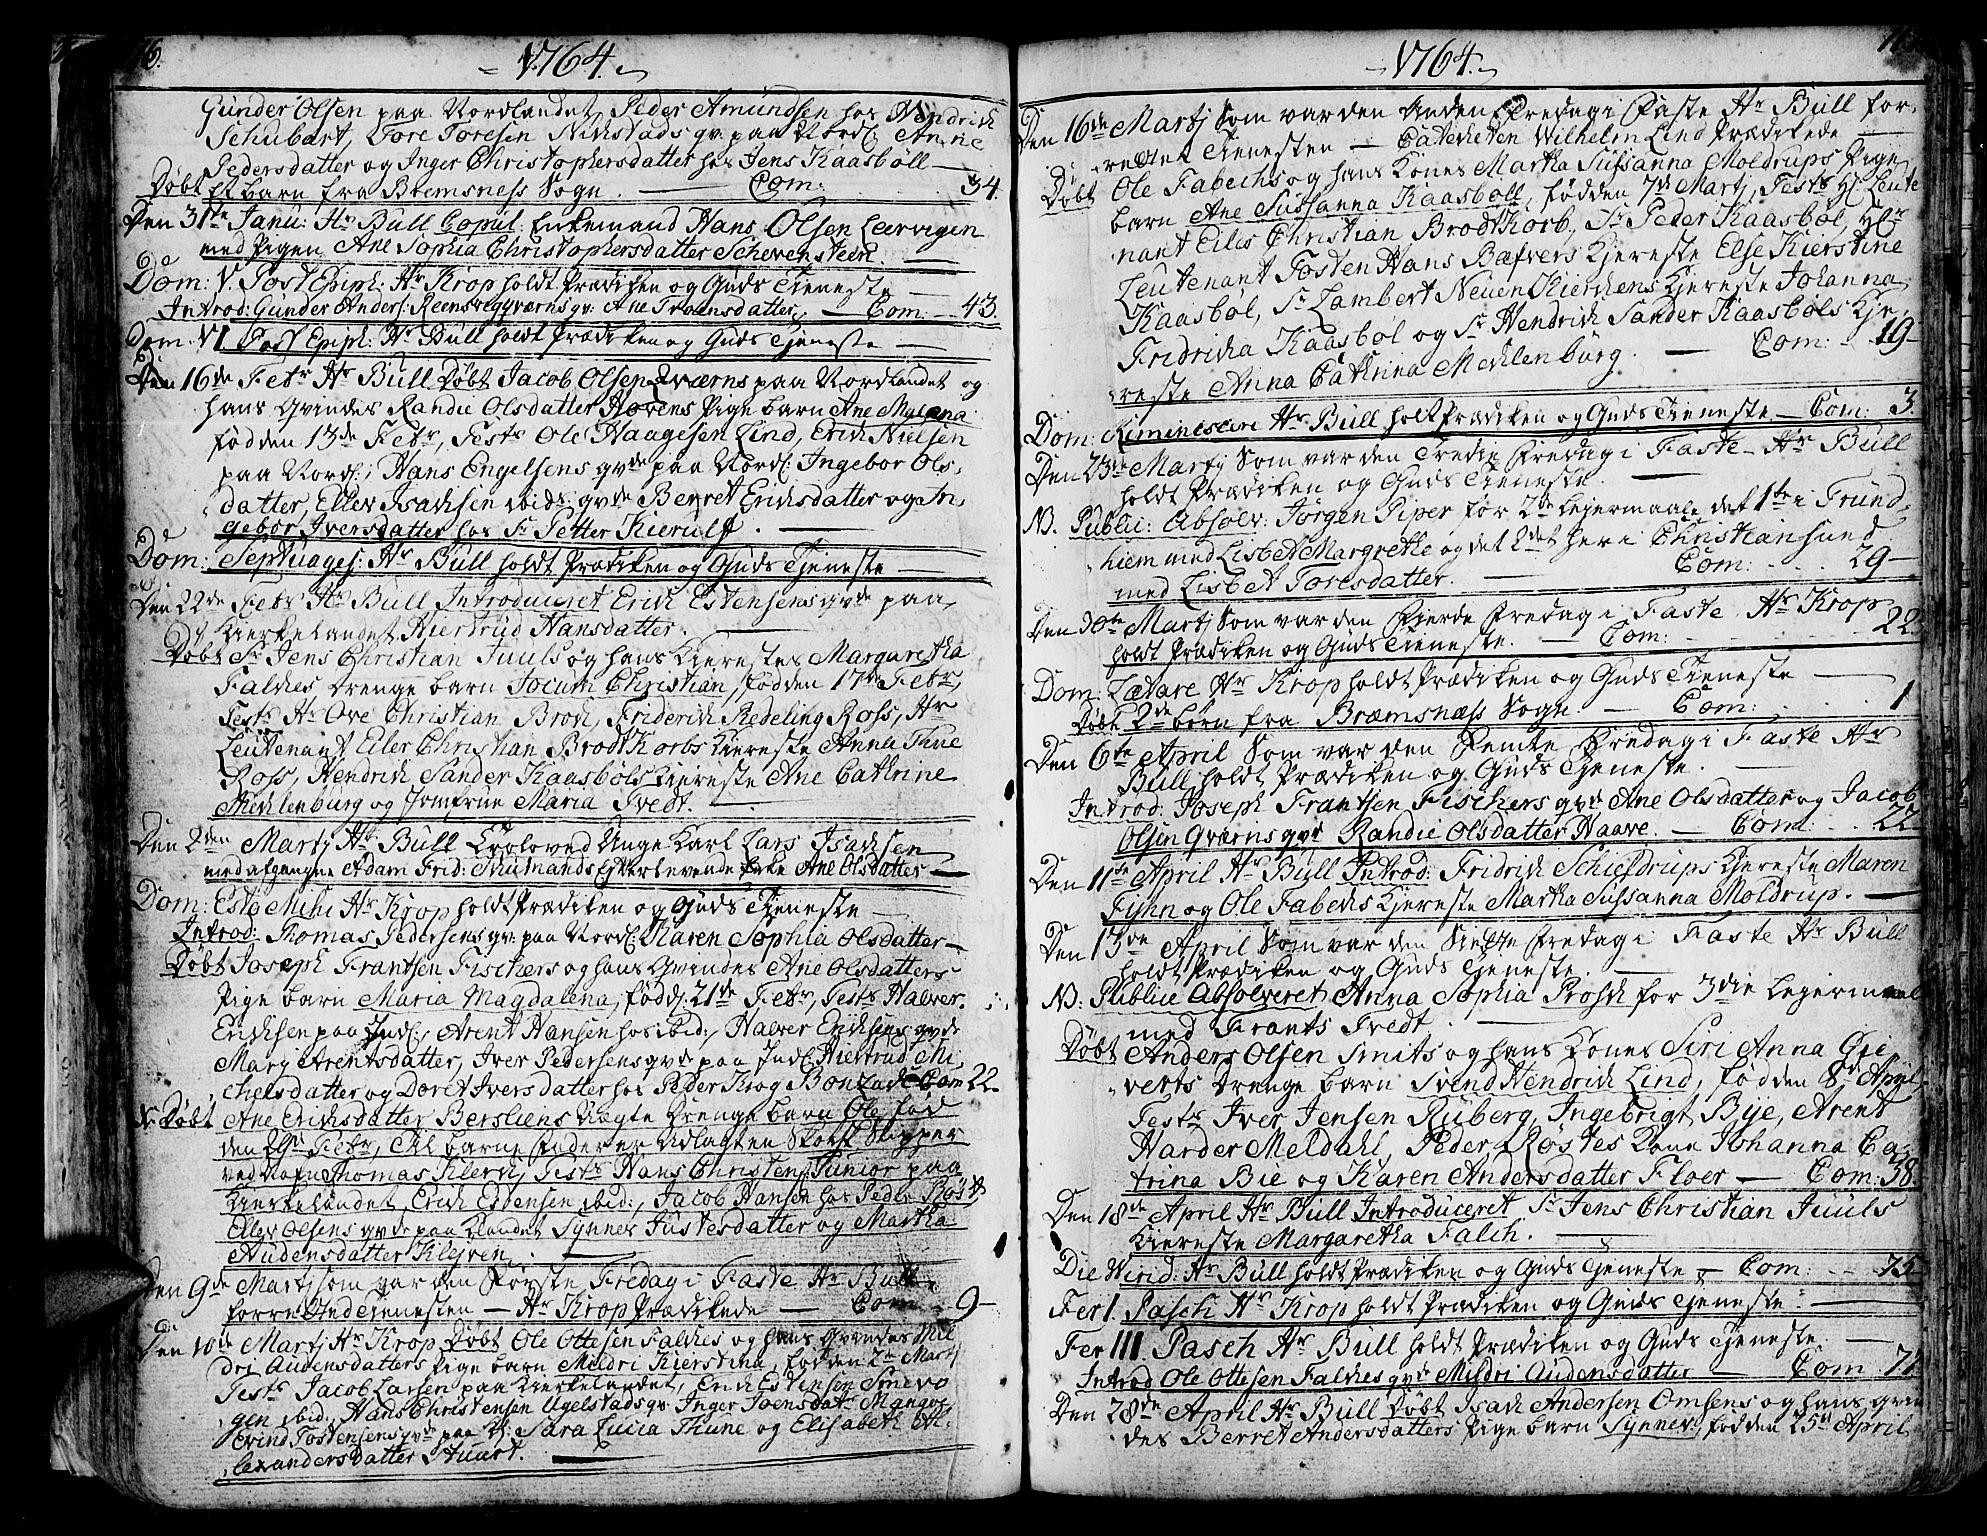 1764.
Gunder Olsen paa Nordlandet, Peder Amundsen hos Hendrich
Schubart, Tore Toresen Nikstads gv: paa Nordl: Anne
Pedersdatter og Inger Christophersdatter hos Jens Kaasbøll
Døbt Et barn fra Bremsness Sogn. Com: 34.
Den 31te Janu: Hr Bull Copul: Enkemand Hans Olsen Leervigen
med Pigen Ane Sophia Christophersdatter Schevensteen.
Dom: V. Post Epiph: Hr Krop holdt Prædiken og Guds Tieneste
Introd: Gunder Anders: Reensvegqværns gv: Ane Troensdatter, Com: 43.
Dom: VI Post Epiph: Hr Bull holdt Prædiken og Guds Tjeneste
Den 16de Febr Hr Bull Døbt Jacob Olsen Qværns paa Nordlandet og
hans Qvindes Randie Olsdatter Hovens Pige barn Ane Malena
fød den 13de Febr, Testr Ole Haagesen Lind, Erich Nielsen
paa Nordl:, Hans Engelsens gvde paa Nordl: Ingebor Ols-
datter, Eller Isachsen ibid: gvde Berret Erichsdatter og In-
gebor Iversdatter hos Sr Petter Kierulf.
Dom: Septuages: Hr Bull holdt Prædiken og Guds Tjeneste
Den 22de Febr Hr Bull Introduceret Erich Estensens gvde paa
Kierkelandet Hiertrud Hansdatter.
Døbt Sr Jens Christian Juuls og hans Kierestes Margaretha
Falches drenge barn Jocum Christian, fød den 17de Febr,
Testr Hr Ove Christian Broch, Friderich Redeling Ross, Hr
Leutenant Eiler Christian Brodtkorbs Kiereste Anna Thue
Ross, Hendrich Sander Kaasbøls Kiereste Ane Cathrine
Mecklenburg og Jomfrue Maria Tvedt.
Den 2den Martj Hr Bull Troloved Unge Karl Lars Isachsen
med afgangne Adam Frid: Munands Efterlevende Enke Ane Olsdatter
Dom: Esto Mihi Hr Krop holdt Prædiken og Guds Tieneste
Introd: Thomas Pedersens gv: paa Nordl: Karen Sophia Olsdatter
Døbt Joseph Frantsen Fischers og hans Qvindes Ane Olsdatters
Pige barn Maria Magdalena, fødd: 21de Febr, Testr Halver
Erichsen paa Indl:, Arent Hansen hos ibid:, Halver Erichsens gvde
Mary Arentsdatter, Iver Pedersens gvde paa Indl: Hiertrud Mi-
chelsdatter og Doret Iversdatter hos Peder Krog Bonzach Com 22
N: Døbt Ane Erichsdatter Bersliens Uægte drenge barn Ole fød
den 29d Febr, Til barne Fader er Udlagt en Skotsk Skipper
ved Nafn Thomas Klerch, Testr Hans Christens: Junior paa
Kierkelandet, Erich Estensen ibid:, Jacob Hansen hos Peder Røst,
Eller Olsens gvde paa Landet Synnev Justesdatter og Martha
Audensdatter Kleven.
Den 9de Martj som var den Første Fredag i Faste Hr Bull
forrettned Tienesten — Hr Krop Prædikede — Com: 9
Den 10de Martj Hr Krop Døbt Ole Ottesen Falches og hans Qvindes Mil-
dri Audensdatters Pige barn Mildri Kierstina, fød den 2den Martj
Testr Jacob Larsen paa Kierkelandet, Erich Estensen Smevo
gen ibid:, Hans Christensen Ugelstads gv: Inger Joensdatt: Mangor
Evind Tostensens gvde paa Kl: Sara Lucia Thune og Elisabeth Al-
lexandersdatter Stuart.
1764.
Den 16de Martj Som var den Anden Fredag i Faste Hr Bull for-
rettet Tienesten — Catecheten Wilhelm Lind Prædikede
Døbt Ole Fabechs og hans Kones Martha Sussanna Moldrups Pige
barn Ane Sussanna Kaasbøll, fød den 7de Martj, Testr Hr Leute
nant Eiler Christian Brodtkorb, Sr Peder Kaasbøl, Hr
Leutenant Tosten Hans Bæfvers Kjereste Else Kierstine
Kaasbøl, Sr Lambert Neuen Kierchens Kjereste Johanna
Fridricha Kaasbøl og Sr Hendrich Sander Kaasbøls Kje-
reste Anna Cathrina Mechlenburg. Com: 19
Dom: Reminiscere Hr Bull holdt Prædiken og Guds Tieneste — Com: 3.
Den 23de Martj Som var den Tredie Fredag i Faste Hr Bull
holdt Prædiken og Guds Tieneste.
N. Public: Absolv: Jørgen Piper før 2de Lejermaale det 1te i Trund-
hiem med Lisbet Margrethe og det 2det her i Christiansund
med Lisbet Toresdatter. Com: 29
Den 30te Martj Som var den Fierde Fredag i Faste Hr Krop
holdt Prædiken og Guds Tieneste. — Com: 22
Dom: Lætare Hr Krop holdt Prædiken og Guds Tieneste
Døbt 2de børn fra Bræmsnæss Sogn. — Com: 1
Den 6te April Som var den Femte Fredag i Faste Hr
Bull holdt Prædiken og Guds Tjeneste.
Introd: Joseph Frantsen Fischers gvde Ane Olsdatter og Jacob
Olsen Qværns gvde Randie Olsdatter Haave. — Com: 22
Den 11te April Hr Bull Introd: Fridrich Schieldrups Kjereste Maren
Fyhn og Ole Fabechs Kjereste Martha Sussanna Moldrup.
Den 13de April Som var den Siette Fredag i Faste Hr Bull
holdt Prædiken og Guds Tieneste.
N: Publice Absolveret Anna Sophia Prosch for 3die Lejermaal
med Frants Tvedt
Døbt Anders Olsen Smits og hans Kones Siri Anna Gie
verts drenge barn Svend Hendrich Lind, fød den 8de April
Testr Iver Jensen Ruberg, Ingebrigt Bije, Arent
Harder Meldahl, Peder Røstes Kone Johanna Ca-
trina Bie og Karen Andersdatter Floer — Com: 38
Den 18de April Hr Bull Introduceret Sr Jens Christian Juuls
Kiereste Margaretha Falch.
Die Virid: Hr Bull holdt Prædiken og Guds Tjeneste — Com: 75
Fer I. Pasch Hr Krop holdt Prædiken og Guds Tjeneste
Fer III Pasch Hr Bull holdt Prædiken og Guds Tjeneste.
Introd Ole Ottesen Falches gvde Mildri Audensdatter — Com: 77
Den 28de April Hr Bull Døbt Isach Andersen Omsens og hans qvin
des Berret Andersdatters Pige barn Synnev, fød den 25de April